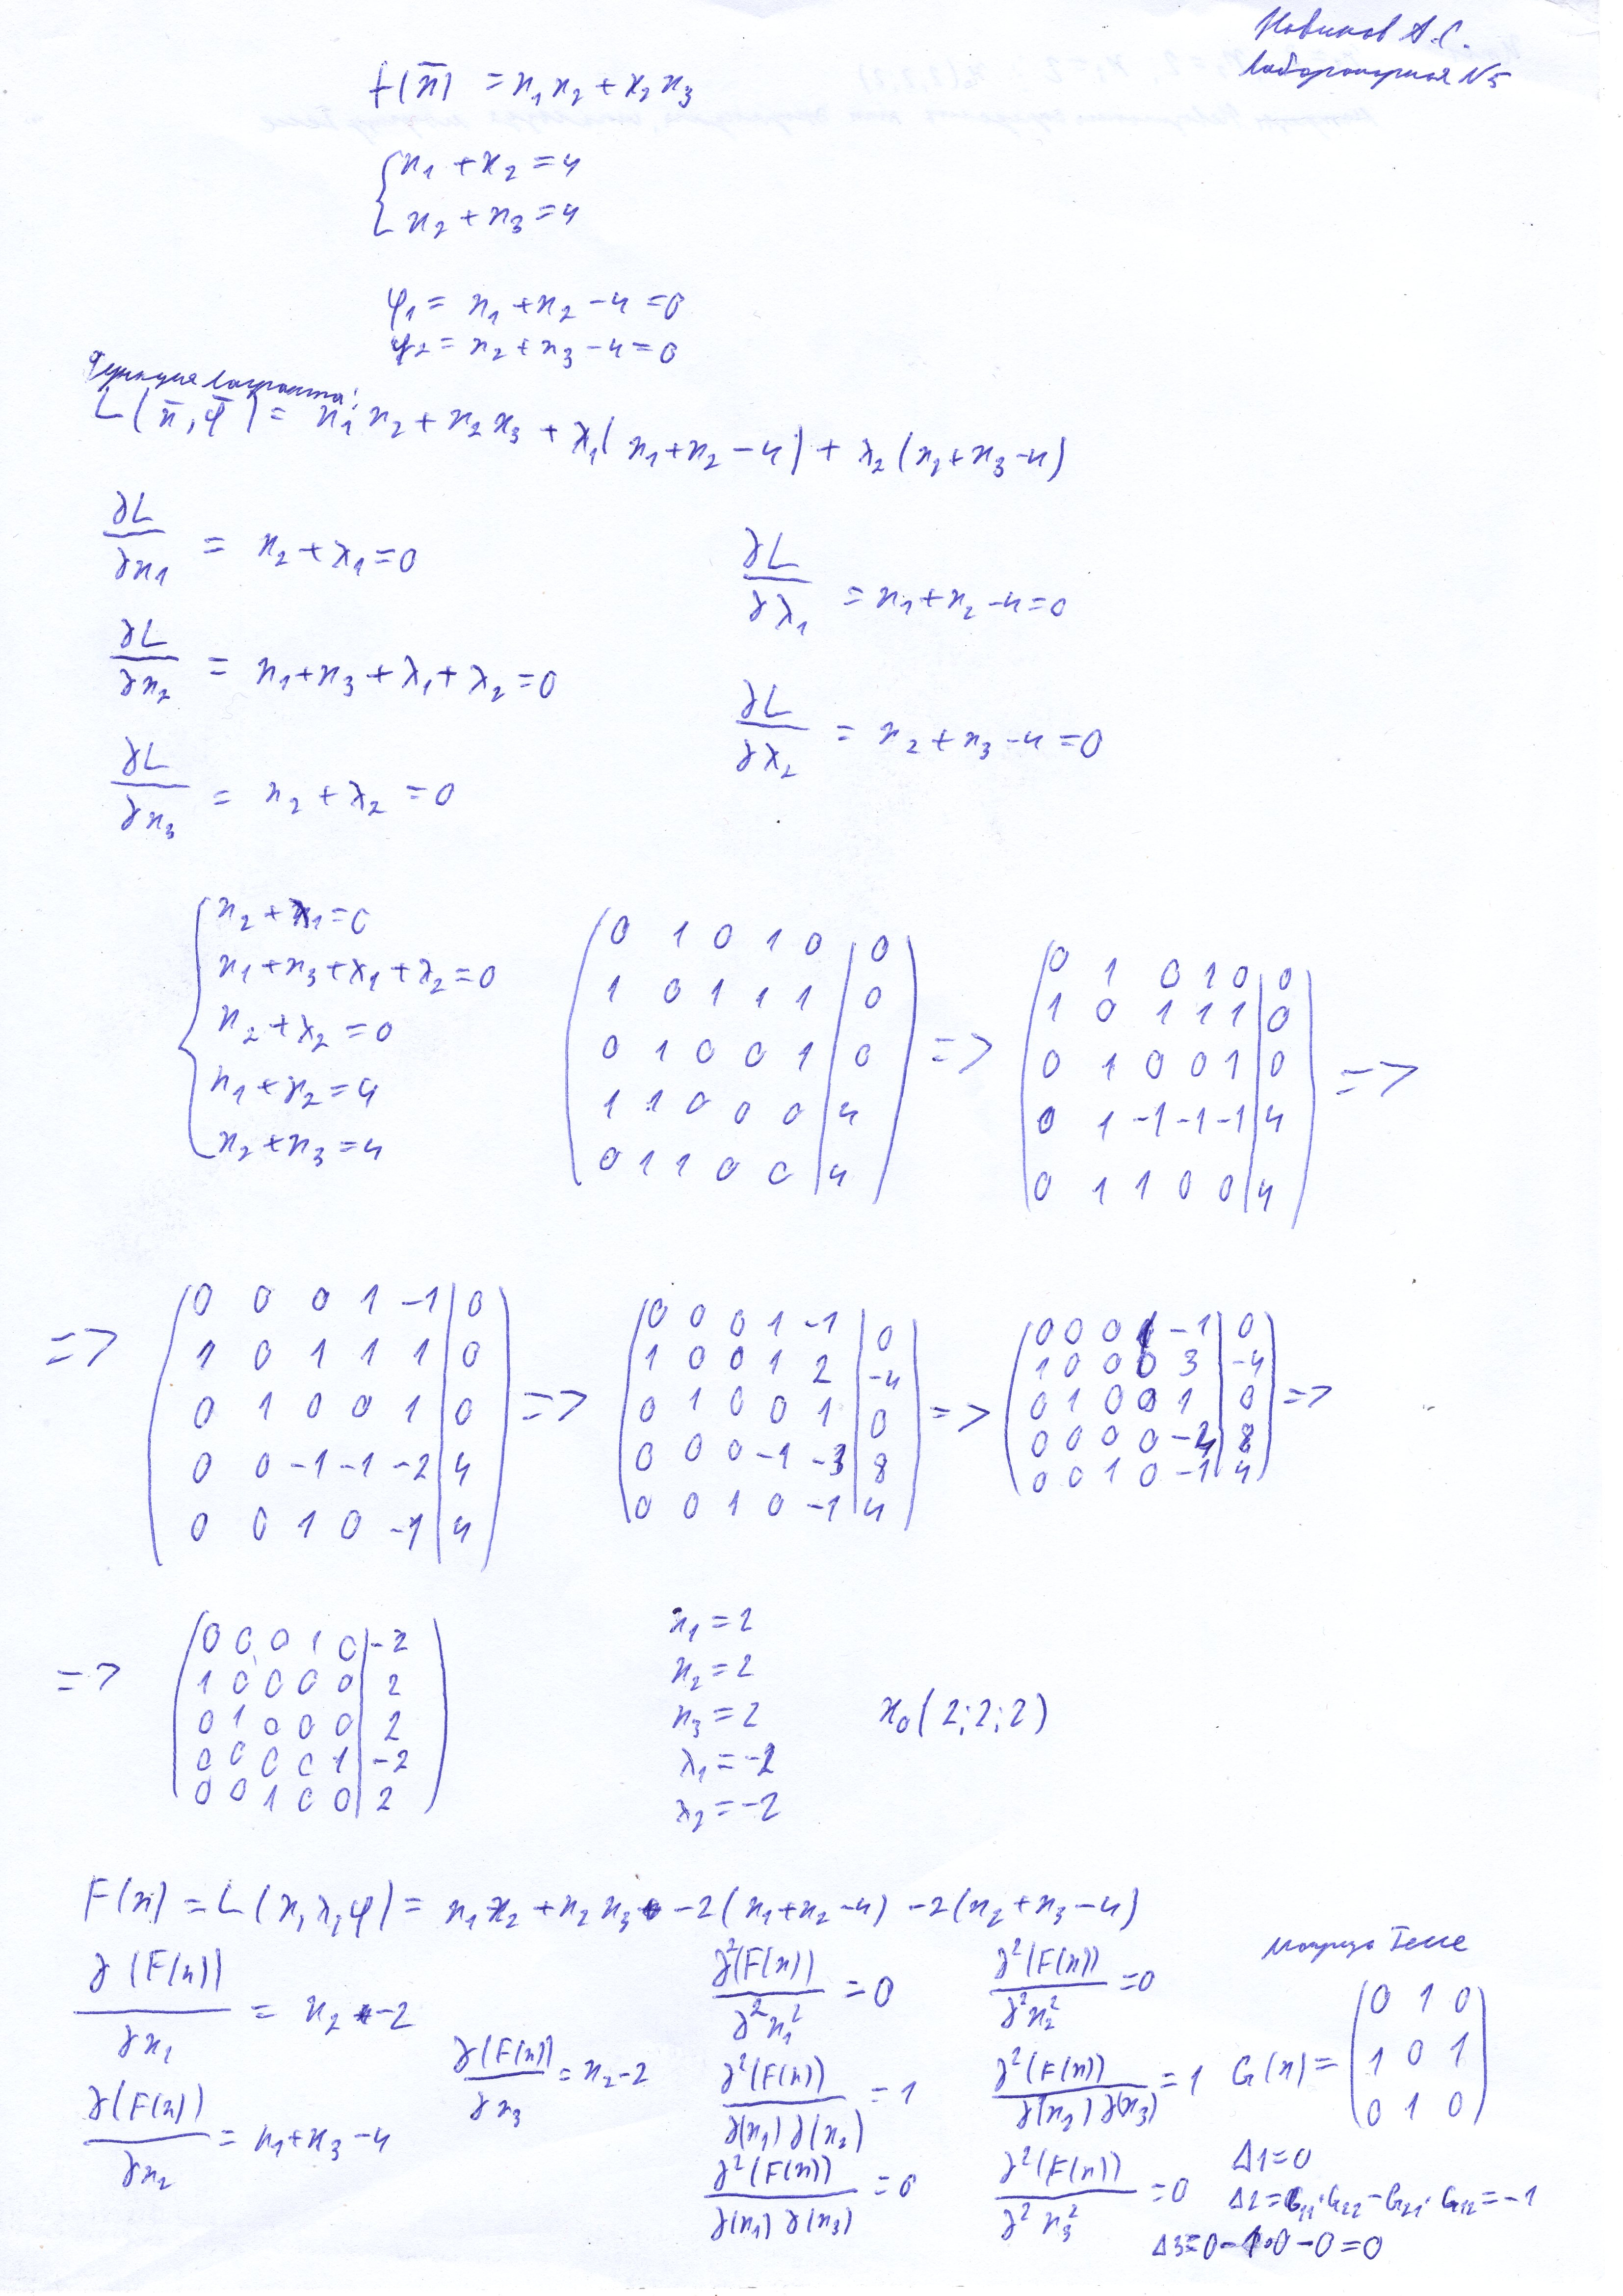 Новиков А.С.
Лабораторная №5
f(x̄) = x₁x₂ + x₂x₃
{x₁ + x₂ = 4
x₂ + x₃ = 4
φ₁ = x₁ + x₂ - 4 = 0
φ₂ = x₂ + x₃ - 4 = 0
Функция Лагранжа:
L(x̄, φ̄) = x₁x₂ + x₂x₃ + λ₁(x₁ + x₂ - 4) + λ₂(x₂ + x₃ - 4)
∂L/∂x₁ = x₂ + λ₁ = 0
∂L/∂x₂ = x₁ + x₃ + λ₁ + λ₂ = 0
∂L/∂x₃ = x₂ + λ₂ = 0
∂L/∂λ₁ = x₁ + x₂ - 4 = 0
∂L/∂λ₂ = x₂ + x₃ - 4 = 0
{x₂ + λ₁ = 0
x₁ + x₃ + λ₁ + λ₂ = 0
x₂ + λ₂ = 0
x₁ + x₂ = 4
x₂ + x₃ = 4
(0 1 0 1 0 | 0
1 0 1 1 1 | 0
0 1 0 0 1 | 0
1 1 0 0 0 | 4
0 1 1 0 0 | 4) =>
(0 1 0 1 0 | 0
1 0 1 1 1 | 0
0 1 0 0 1 | 0
0 1 -1 -1 -1 | 4
0 1 1 0 0 | 4) =>
=> (0 0 0 1 -1 | 0
1 0 1 1 1 | 0
0 1 0 0 1 | 0
0 0 -1 -1 -2 | 4
0 0 1 0 -1 | 4) =>
(0 0 0 1 -1 | 0
1 0 0 1 2 | -4
0 1 0 0 1 | 0
0 0 0 -1 -3 | 8
0 0 1 0 -1 | 4) =>
(0 0 0 1 -1 | 0
1 0 0 0 3 | -4
0 1 0 0 1 | 0
0 0 0 0 -4 | 8
0 0 1 0 -1 | 4) =>
=> (0 0 0 1 0 | -2
1 0 0 0 0 | 2
0 1 0 0 0 | 2
0 0 0 0 1 | -2
0 0 1 0 0 | 2)
x₁ = 2
x₂ = 2
x₃ = 2
λ₁ = -2
λ₂ = -2
x₀(2; 2; 2)
F(x) = L(x, λ, φ) = x₁x₂ + x₂x₃ - 2(x₁ + x₂ - 4) - 2(x₂ + x₃ - 4)
∂(F(x))/∂x₁ = x₂ - 2
∂(F(x))/∂x₂ = x₁ + x₃ - 4
∂(F(x))/∂x₃ = x₂ - 2
∂²(F(x))/∂²x₁² = 0
∂²(F(x))/∂(x₁)∂(x₂) = 1
∂²(F(x))/∂(x₁)∂(x₃) = 0
∂²(F(x))/∂²x₂² = 0
∂²(F(x))/∂(x₂)∂(x₃) = 1
∂²(F(x))/∂²x₃² = 0
Матрица Гессе
G(x) = (0 1 0
1 0 1
0 1 0)
Δ1 = 0
Δ2 = G₁₁·G₂₂ - G₂₁·G₁₂ = -1
Δ3 = 0 - 1·0 - 0 = 0